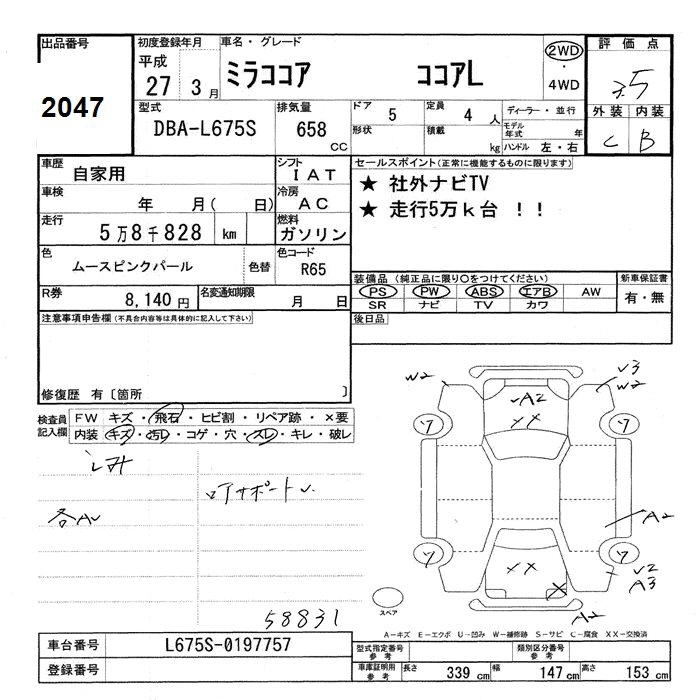 出品番号
2047
初度登録年月
平成
27 3月
車名・グレード
ミラココア ココアL
2WD
・
4WD
評価点
外装 内装
C B
型式
DBA-L675S
排気量
658 CC
ドア 5
定員 4 人
形状
積載 kg
ディーラー・並行
モデル年式 年
ハンドル 左・右
車歴
自家用
シフト
IAT
車検
年 月( 日)
冷房
AC
走行
5万8千828 km
燃料
ガソリン
色
ムースピンクパール 色替
色コード
R65
R券
8,140円
名変通知期限
月 日
セールスポイント(正常に機能するものに限ります)
★ 社外ナビTV
★ 走行5万k台 !!
装備品(純正品に限り○をつけてください)
PS PW ABS エアB AW
SR ナビ TV カワ
新車保証書
有・無
後日品
注意事項申告欄(不具合内容等は具体的に記入して下さい)
修復歴 有〔箇所 〕
検査員
記入欄
FW キズ・飛石・ヒビ割・リペア跡・×要
内装 キズ・汚レ・コゲ・穴・スレ・キレ・破レ
シミ
ロアサポート
各AU
58831
W2
A2
XX
V3
W2
ワ
ワ
A2
ワ
ワ
XX
X
V2
A3
A2
スペア
A-キズ E-エクボ U-凹み W-補修跡 S-サビ C-腐食 XX-交換済
車台番号
L675S-0197757
登録番号
型式指定番号
参考
類別区分番号
参考
車庫証明用
参考
長さ 339 cm
幅 147 cm
高さ 153 cm